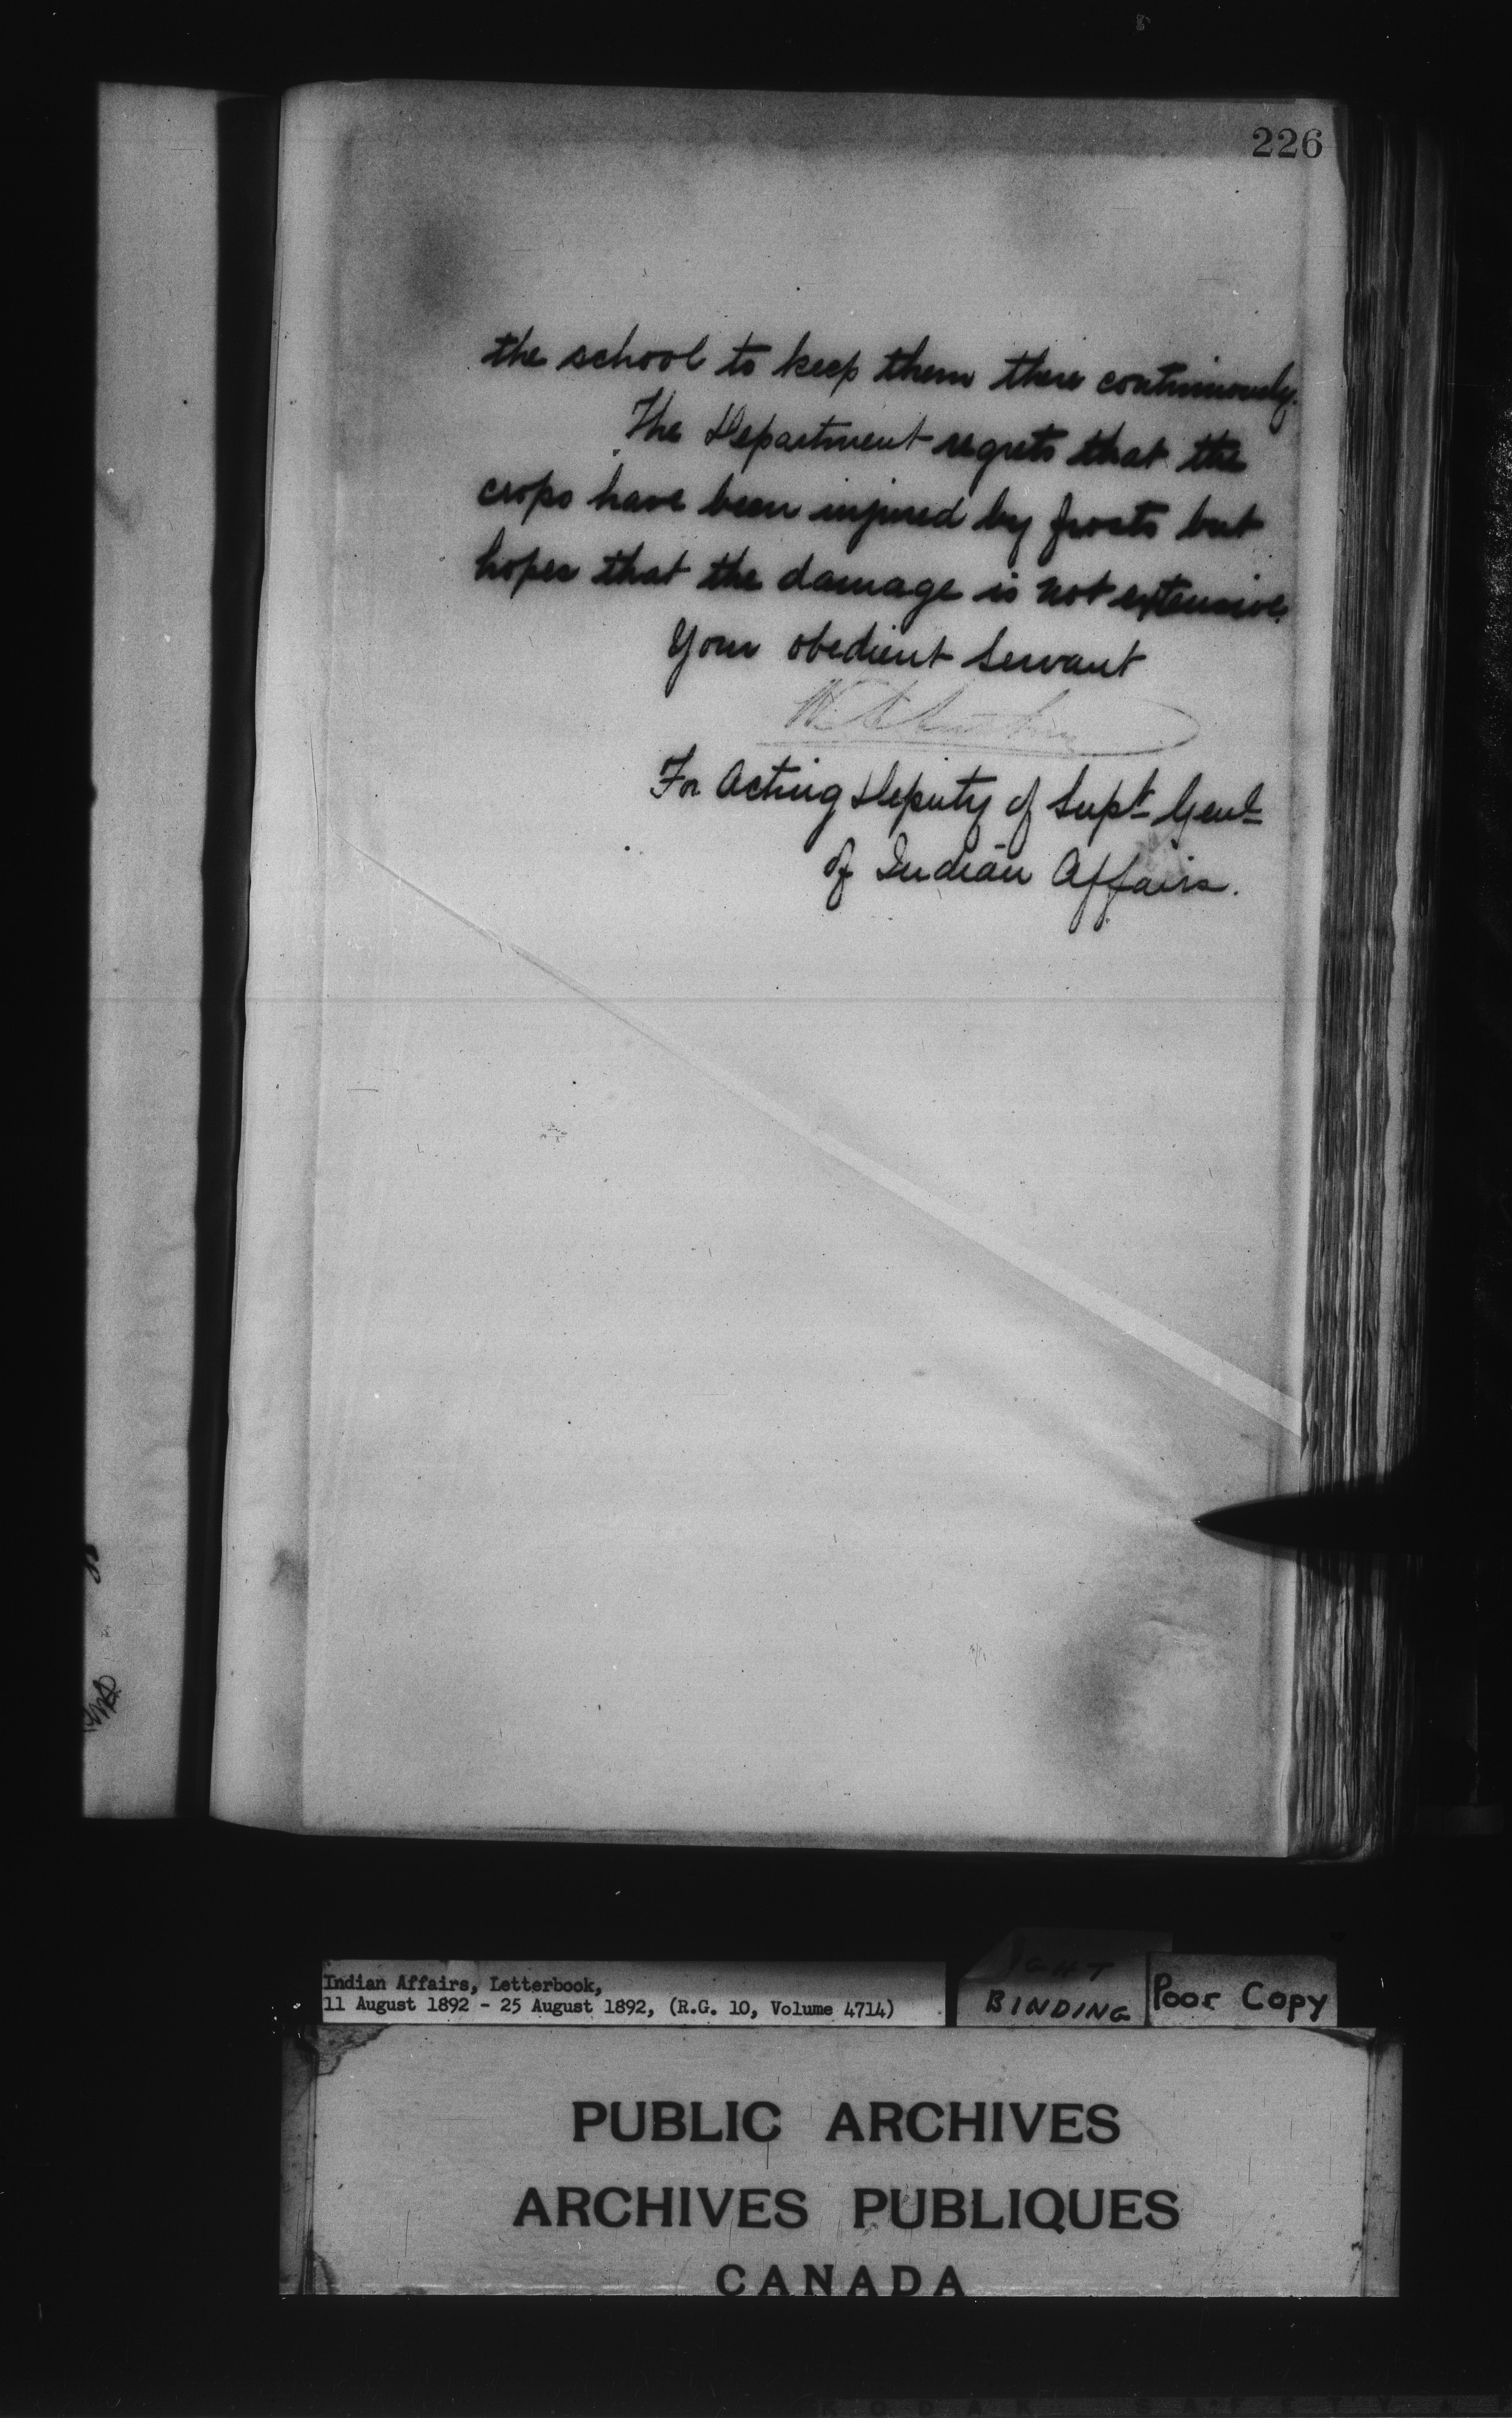 226
the school to keep them there continuously.
The Department regrets that the
crops have been injured by frosts but
hopes that the damage is not extensive.
Your obedient Servant
For Acting Deputy of Supt Genl
of Indian Affairs.
Indian Affairs, Letterbook,
11 August 1892 - 25 August 1892, (R.G. 10, Volume 4714)
BINDING
Poor Copy
PUBLIC ARCHIVES
ARCHIVES PUBLIQUES
CANADA